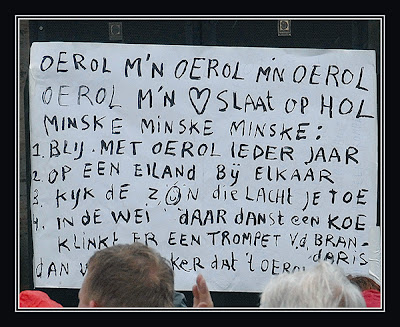 OEROL M'N OEROL M'N OEROL
OEROL M'N ♡ SLAAT OP HOL
MINSKE MINSKE MINSKE:
1. BLIJ MET OEROL IEDER JAAR
2. OP EEN EILAND BIJ ELKAAR
3. KIJK DE ZON die LACHT JE TOE
4. IN DE WEI DAAR DANST EEN KOE
KLINKT ER EEN TROMPET V.d. BRAN-
DARIS
DAN KER dat 't OEROL